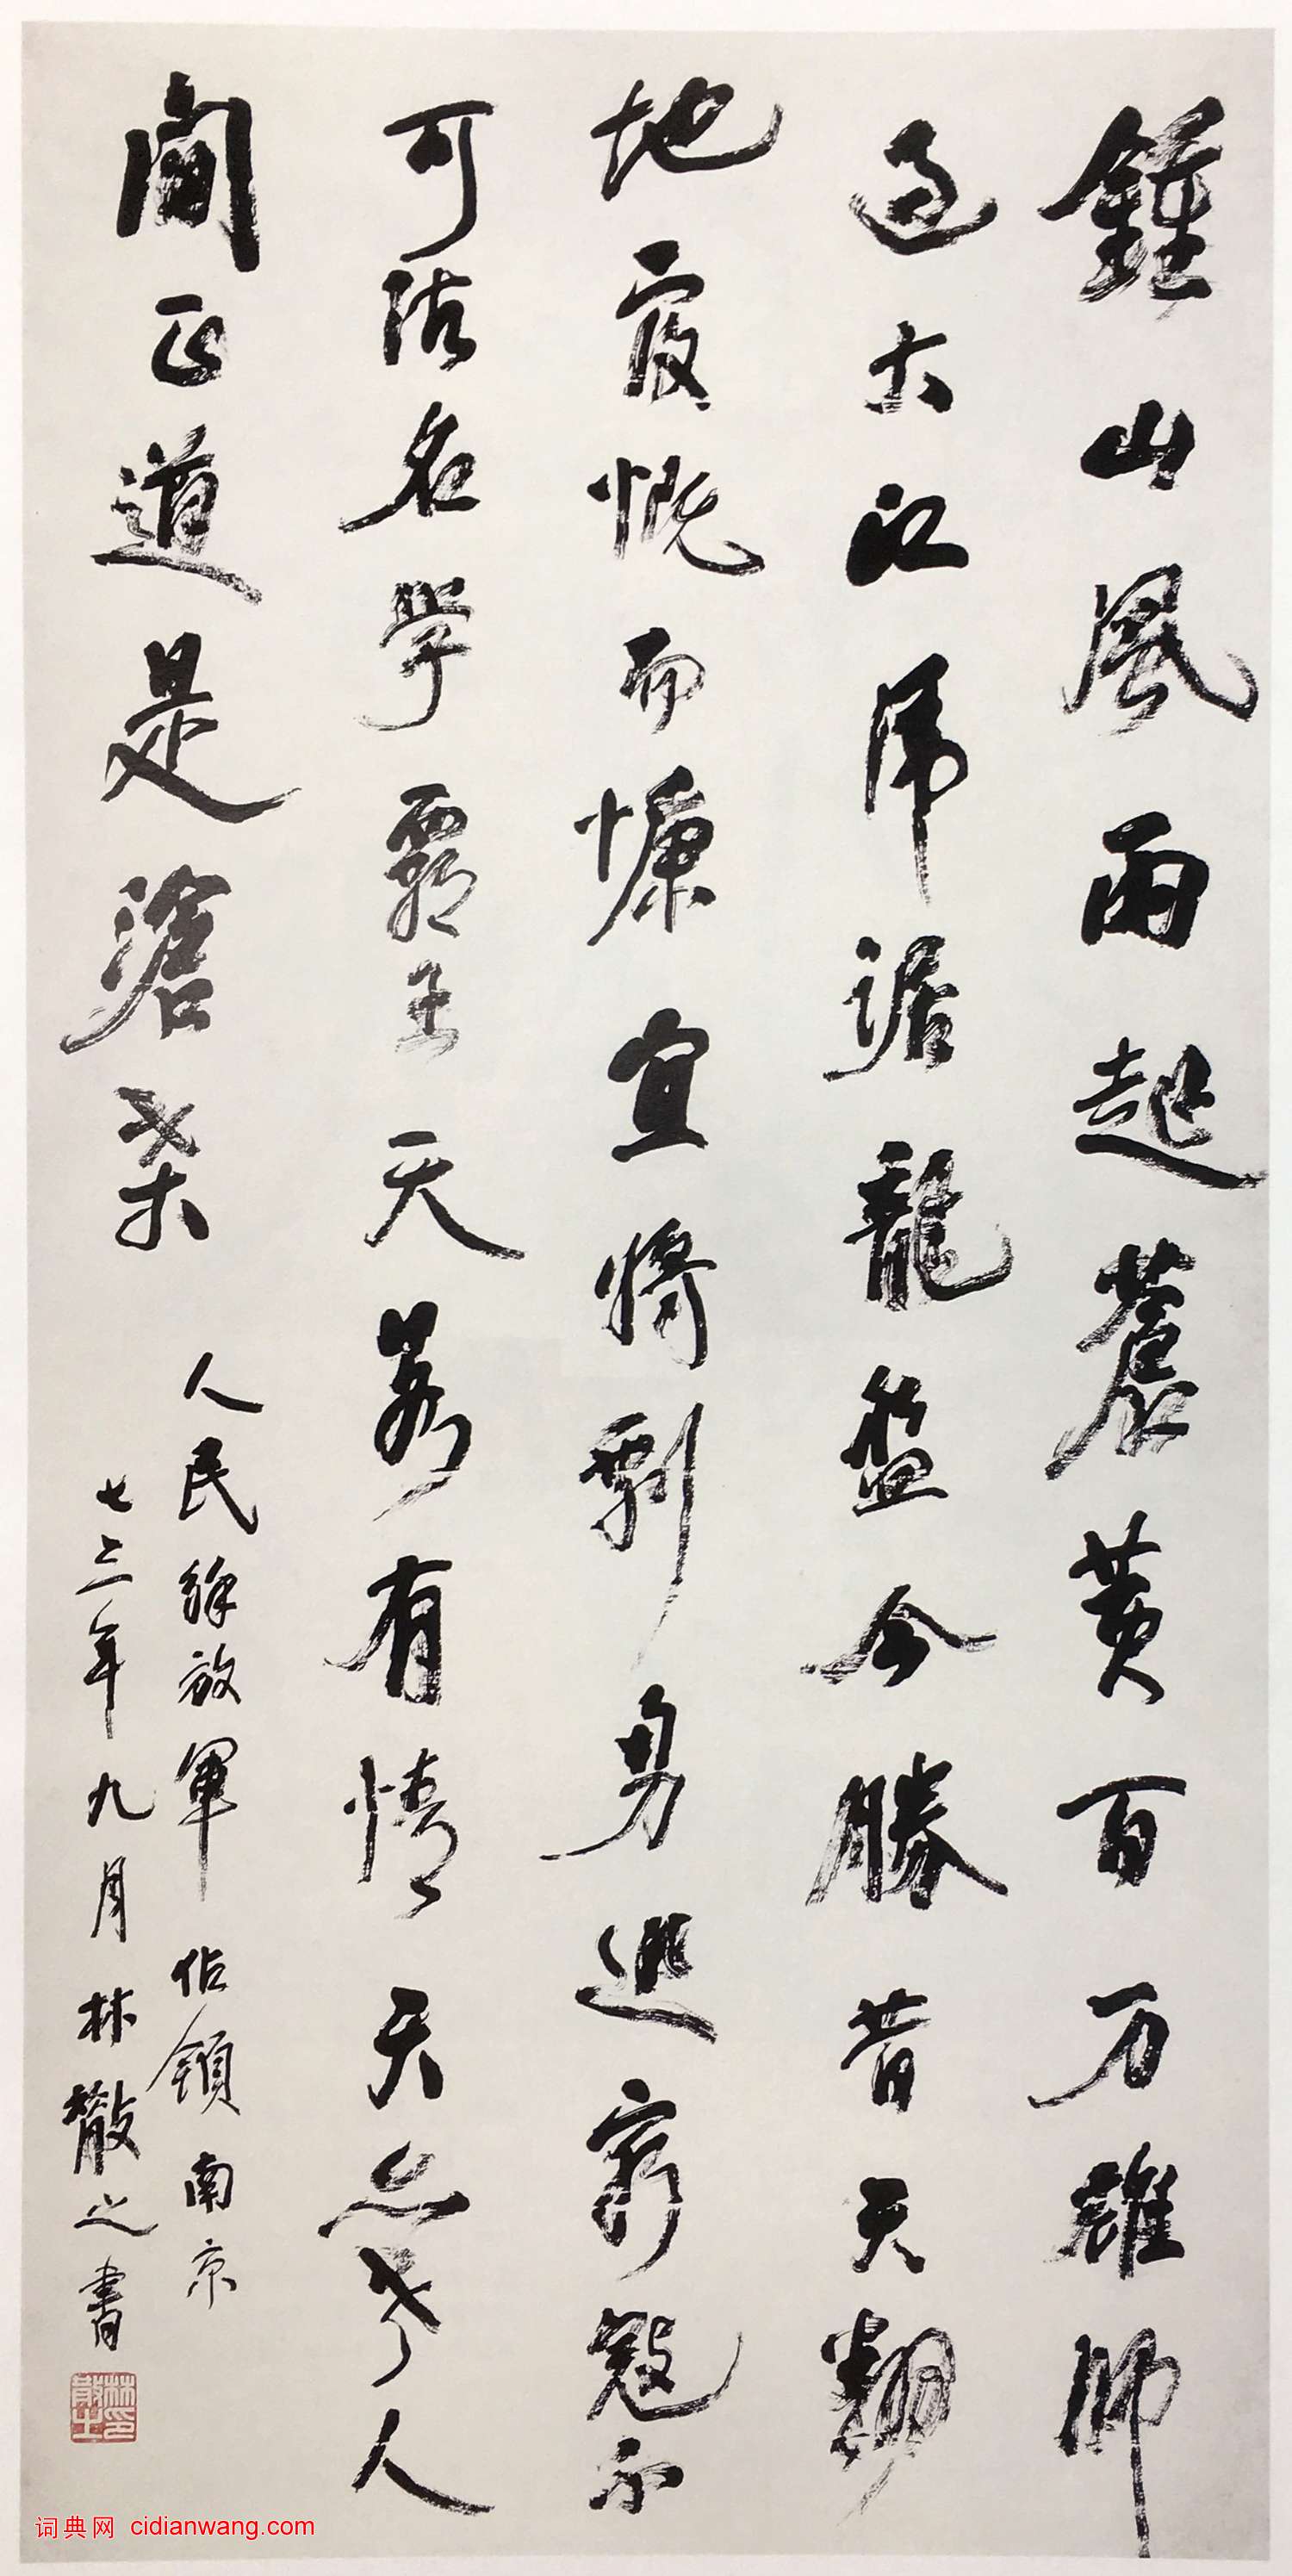 鍾山風雨起蒼黄百万雄師
過大江虎踞龍盤今勝昔天翻
地覆慨而慷宜將剩勇追窮寇不
可沽名學霸王天若有情天亦老人
間正道是滄桑
人民解放軍佔領南京
七三年九月林散之書
林散之印
词典网 cidianwang.com